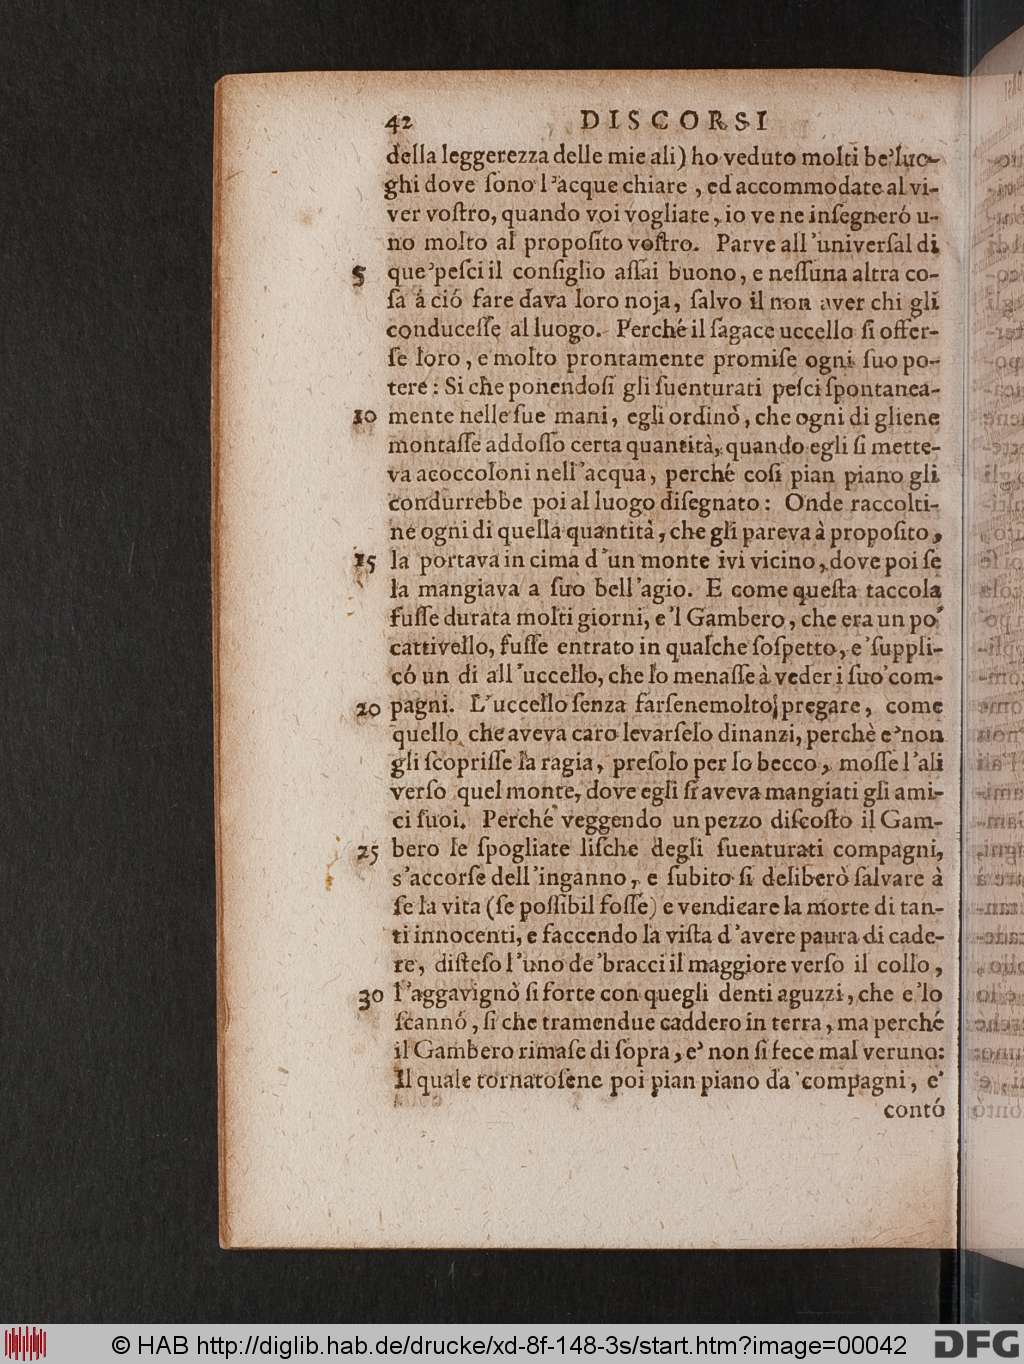 42 DISCORSI
della leggerezza delle mie ali) ho veduto molti be'luo-
ghi dove ſono l'acque chiare, ed accommodate al vi-
ver voſtro, quando voi vogliate, io ve ne inſegneró u-
no molto al propoſito voſtro. Parve all'univerſal di
5 que'peſci il conſiglio aſſai buono, e neſſuna altra co-
ſa á ció fare dava loro noja, ſalvo il non aver chi gli
conduceſſe al luogo. Perché il ſagace uccello ſi offer-
ſe loro, e molto prontamente promiſe ogni ſuo po-
tere: Si che ponendoſi gli ſuenturati peſci ſpontanea-
10 mente nelle ſue mani, egli ordinó, che ogni di gliene
montaſſe addoſſo certa quantità, quando egli ſi mette-
va acoccoloni nell'acqua, perché coſi pian piano gli
condurrebbe poi al luogo diſegnato: Onde raccolti-
ne ogni di quella quantità, che gli pareva à propoſito,
15 la portava in cima d'un monte ivi vicino, dove poi ſe
la mangiava a ſuo bell'agio. E come queſta taccola
fuſſe durata molti giorni, e'l Gambero, che era un po'
cattivello, fuſſe entrato in qualche ſoſpetto, e'ſuppli-
có un di all'uccello, che lo menaſſe à veder i ſuo'com-
20 pagni. L'uccello ſenza farſene molto pregare, come
quello, che aveva caro levarſelo dinanzi, perchè e'non
gli ſcopriſſe la ragia, preſolo per lo becco, moſſe l'ali
verſo quel monte, dove egli ſi aveva mangiati gli ami-
ci ſuoi. Perché veggendo un pezzo diſcoſto il Gam-
25 bero le ſpogliate liſche degli ſuenturati compagni,
s'accorſe dell'inganno, e ſubito ſi deliberò ſalvare à
ſe la vita (ſe poſſibil foſſe) e vendicare la morte di tan-
ti innocenti, e faccendo la viſta d'avere paura di cade-
re, diſteſo l'uno de'bracci il maggiore verſo il collo,
30 l'aggavignò ſi forte con quegli denti aguzzi, che e'lo
ſcannó, ſi che tramendue caddero in terra, ma perché
il Gambero rimaſe di ſopra, e' non ſi fece mal veruno:
Il quale tornatoſene poi pian piano da'compagni, e'
contó
© HAB http://diglib.hab.de/drucke/xd-8f-148-3s/start.htm?image=00042
DFG